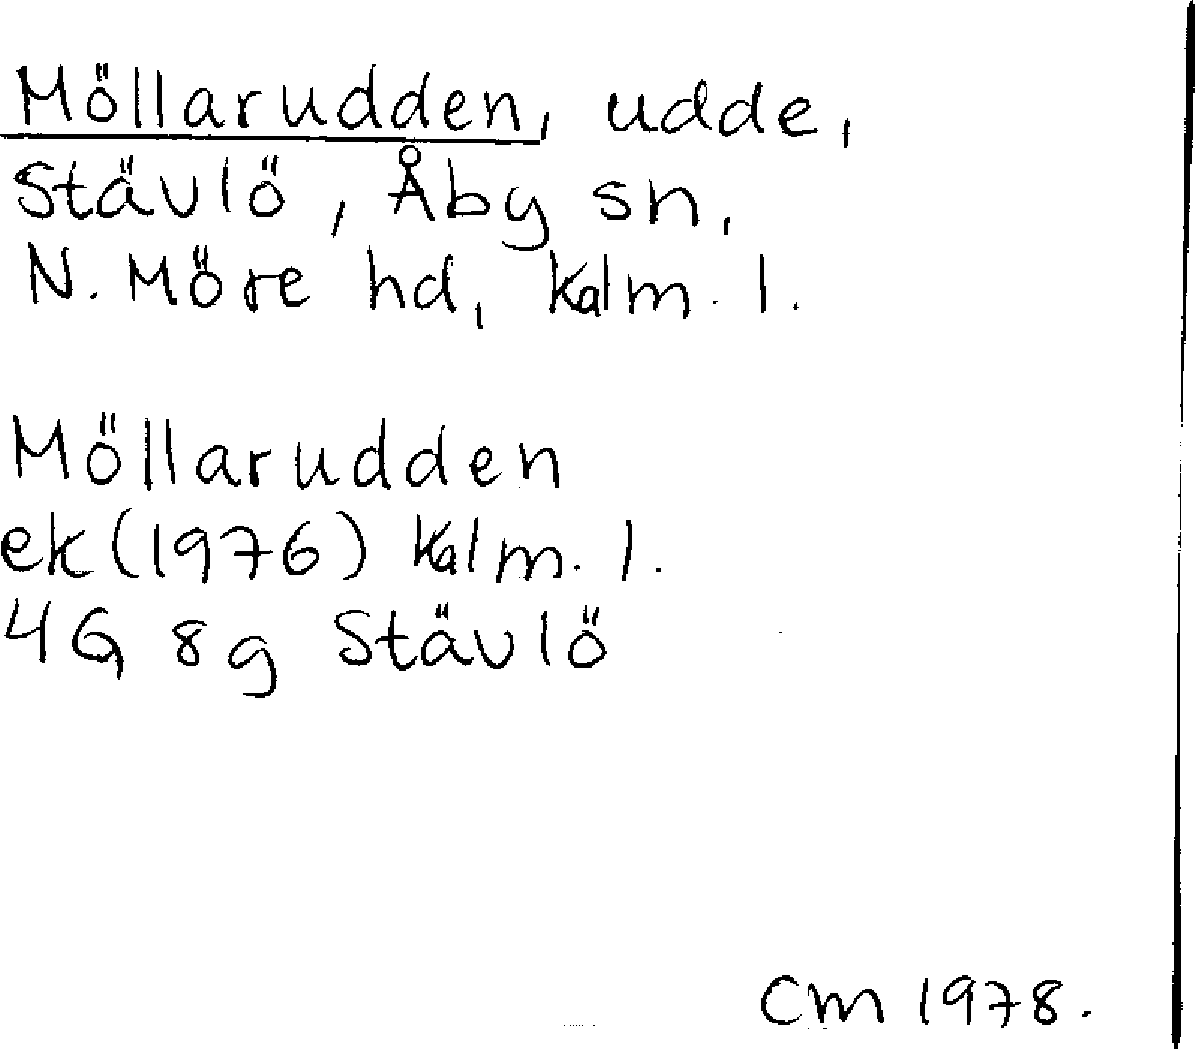 Möllarudden, udde,
Stävlö, Åby sn,
N. Möre hd, Kalm. l.
Möllarudden
ek (1976) Kalm. l.
4G 8g Stävlö
CM 1978.